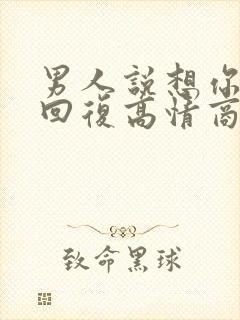 男人說想你
回復高情商
致命黑球